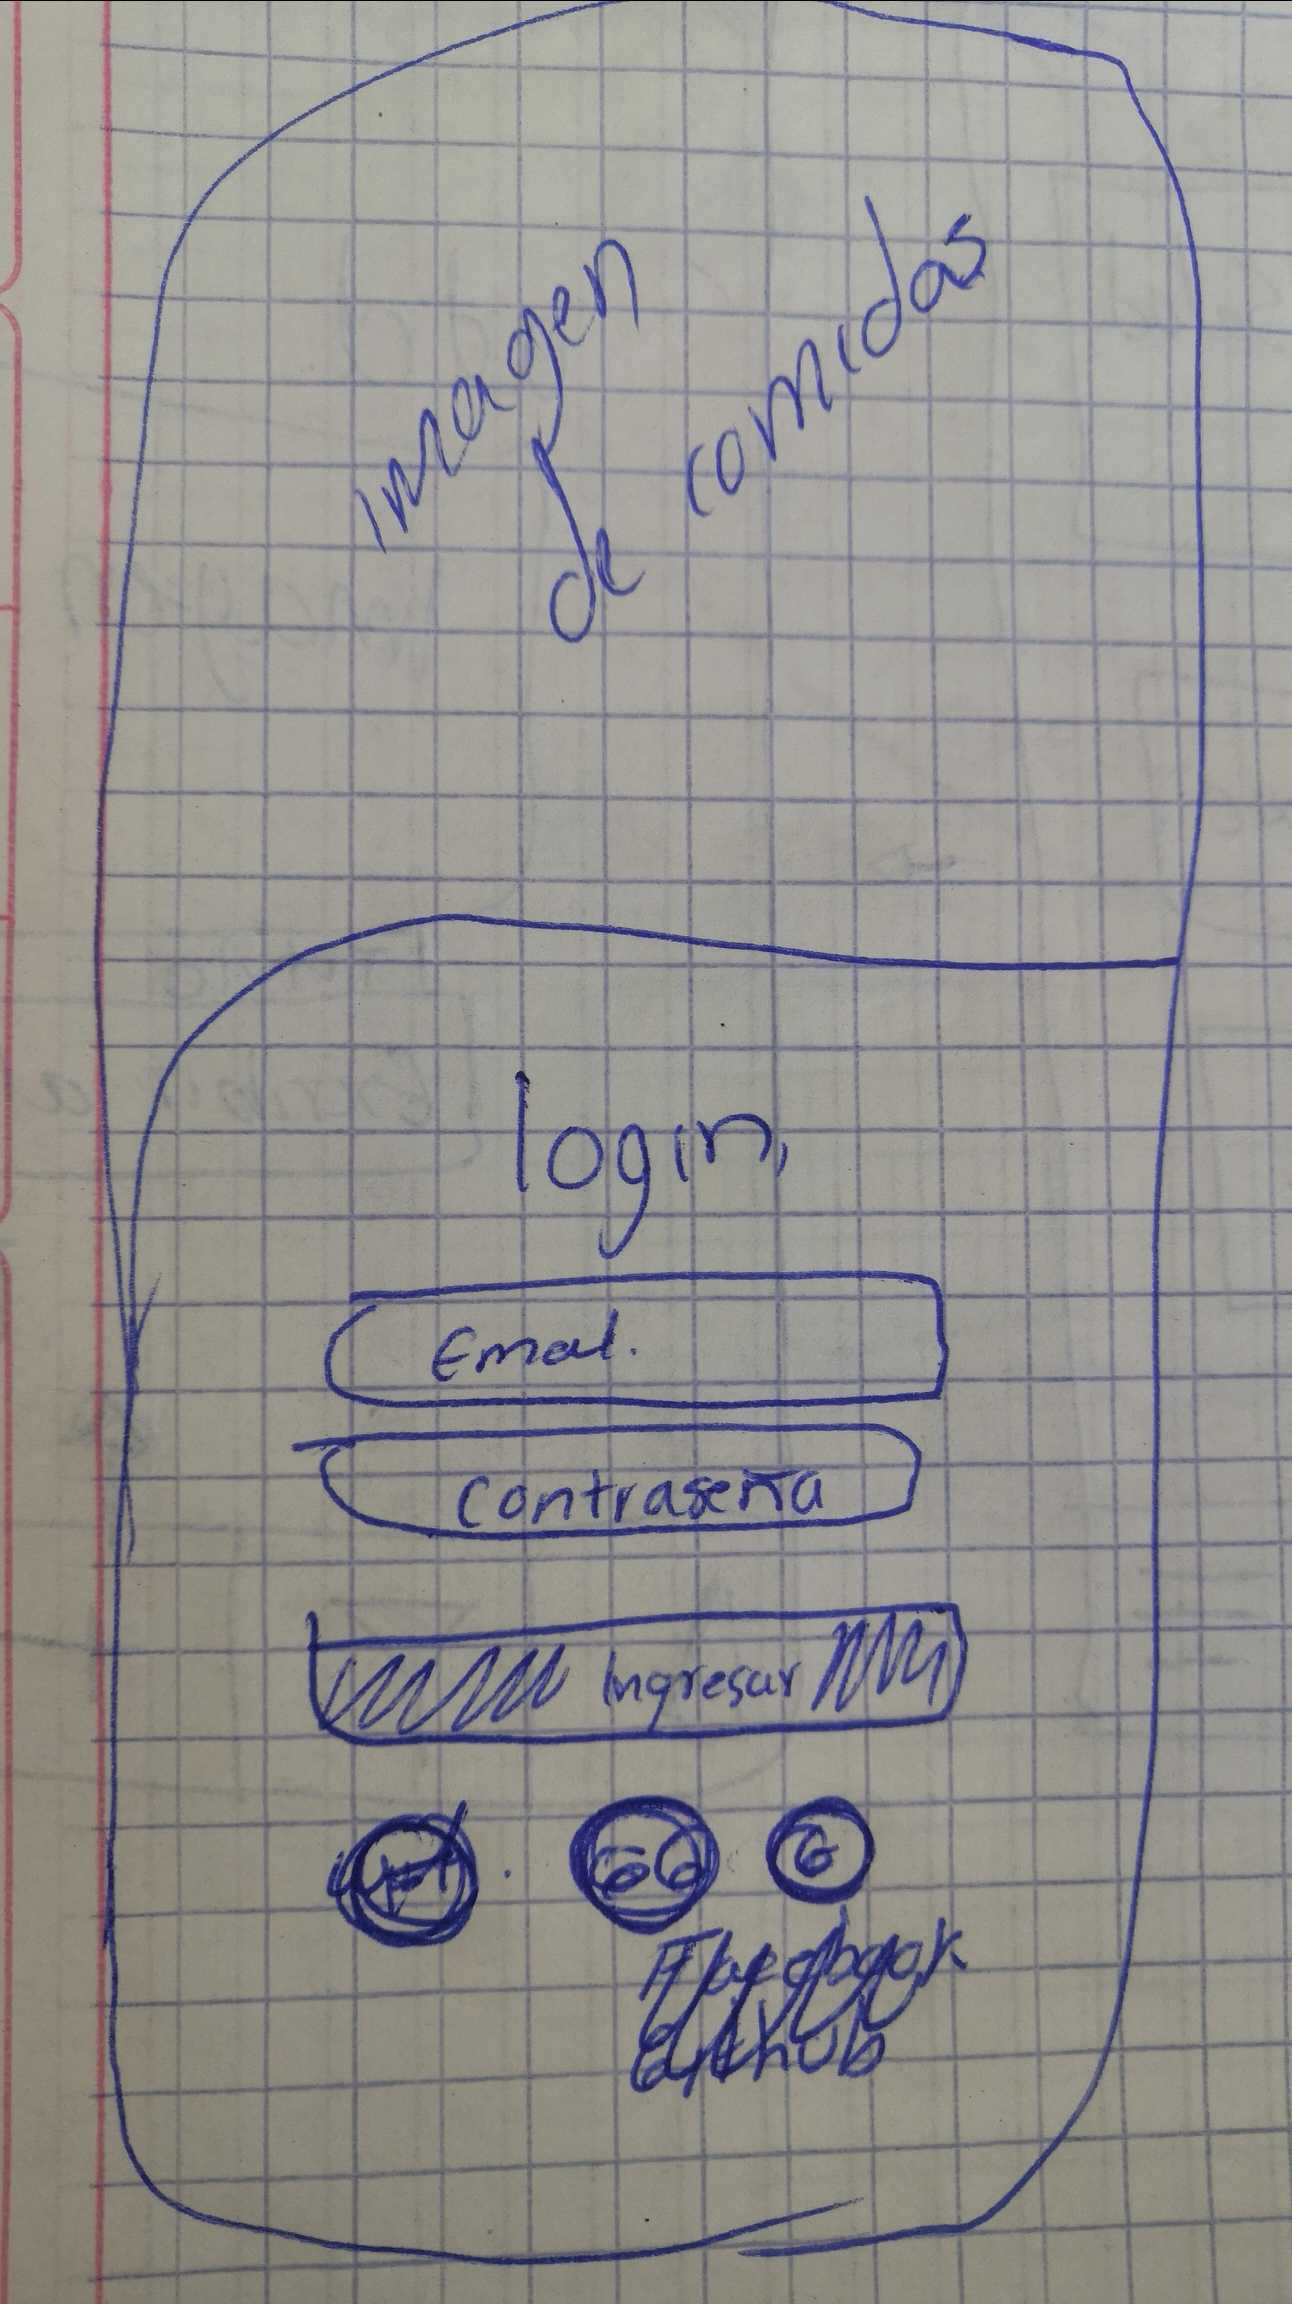 imagen
de comidas
login,
Email.
Contraseña
Ingresar
G
Facebook
Github